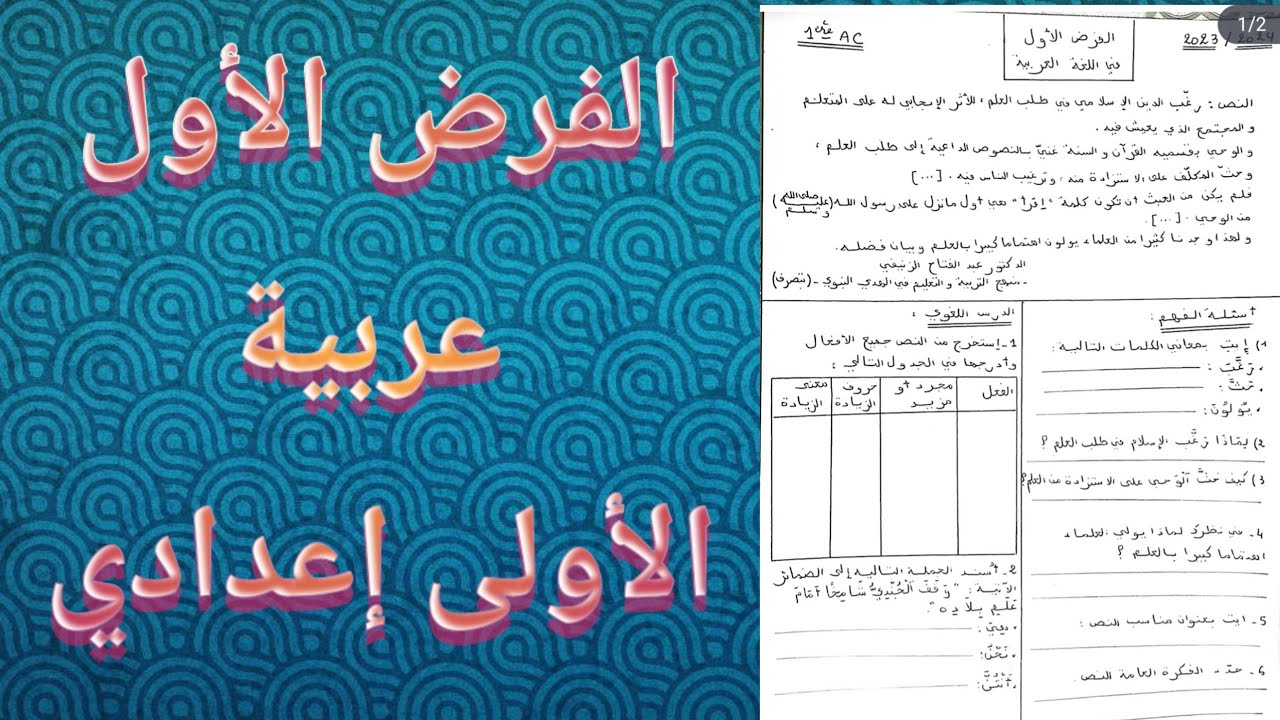 الفرض الأول
عربية
الأولى إعدادي
1/2
1ère AC
الفرض الأول
في اللغة العربية
2023/2024
النص: رغّب الدين الإسلامي في طلب العلم، للأثر الإيجابي له على المتعلم
والمجتمع الذي يعيش فيه.
والوحي بقسميه القرآن والسنة غنيّ بالنصوص الداعية إلى طلب العلم،
وحثّ المكلّف على الاستزادة منه، وترغيب الناس فيه. [...]
فلم يكن من العبث أن تكون كلمة "إقرأ" هي أول ما نزل على رسول الله (صلى الله عليه وسلم)
من الوحي. [...].
ولهذا وجدنا كثيرا من العلماء يولون اهتماما كبيرا بالعلم وبيان فضله.
الدكتور عبد الفتاح الزنيفي
- منهج التربية والتعليم في الهدي النبوي - (بتصرف)
أسئلة الفهم:
1) إيتِ بمعاني الكلمات التالية:
• رَغَّبَ:
• حَثَّ:
• يُولُونَ:
2) بِمَاذَا رَغَّب الإسلام في طلب العلم؟
3) كيف حَثَّ الوَحي على الاستزادة من العلم؟
4- في نظرك لماذا يولي العلماء
اهتماما كبيرا بالعلم؟
5- ايت بعنوان مناسب النص:
6- حدّد الفكرة العامة النص.
الدرس اللغوي:
1- إستخرج من النص جميع الأفعال
وأدرجها في الجدول التالي:
الفعل
مجرد أو مزيد
حروف الزيادة
معنى الزيادة
2- أسند الجملة التالية إلى الضمائر
الآتية: "وَقَفَ الْجُنْدِيُّ شَامِخًا أَمَامَ
عَلَمِ بِلَادِهِ".
• هِيَ:
• نَحْنُ:
• أَنْتُنَّ: